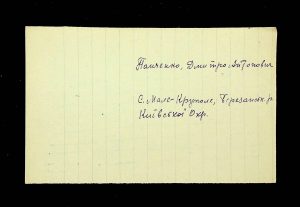 Панченко, Дмитро Антонович
С. Мале-Круполе, Березанськ. р.
Київської Окр.